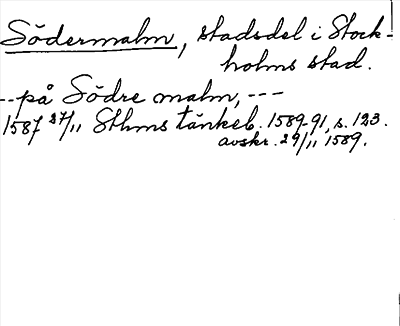 Södermalm, stadsdel i Stock-
holms stad.
--på Södre malm, ---
1587 27/11 Sthms tänkeb. 1589-91, s. 123.
avskr. 29/11 1589.